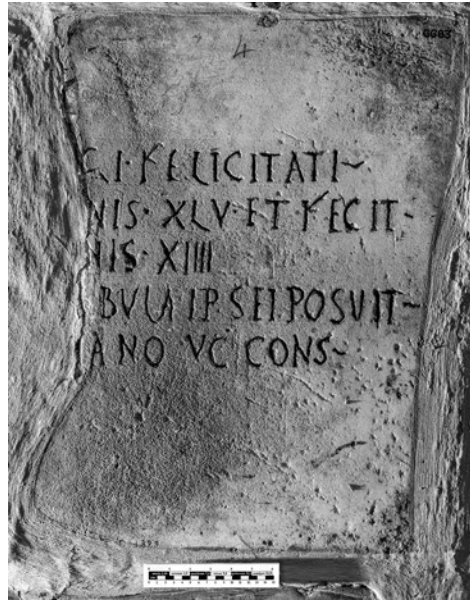 4
I·FELICITATI
NIS·XLV·ET·FECIT·
NIS·XIIII
BVLA IP SEI POSVIT
ANO VC CONS